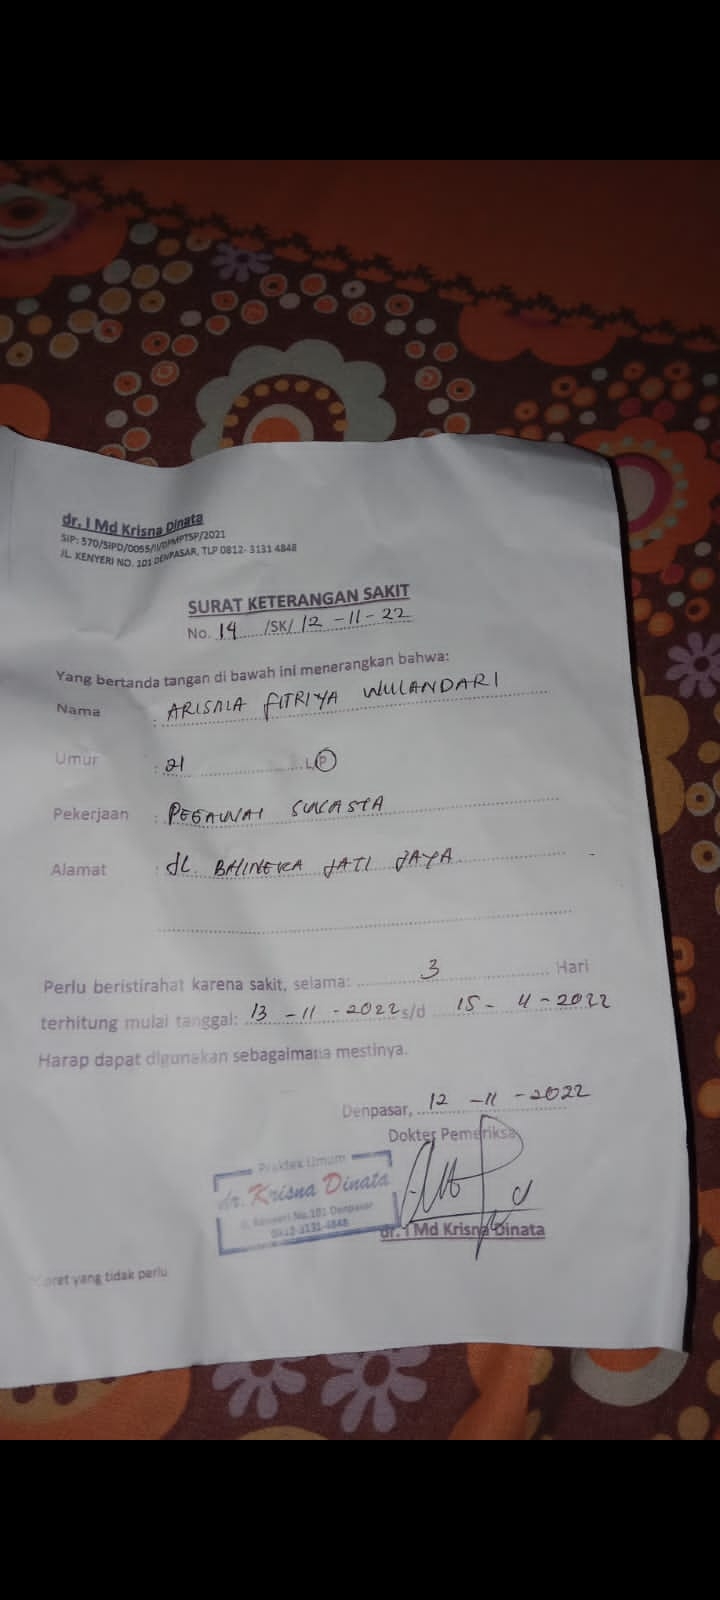 dr. I Md Krisna Dinata
SIP: 570/SIPD/0055/II/DPMPTSP/2021
JL. KENYERI NO. 101 DENPASAR, TLP 0812- 3131 4848
SURAT KETERANGAN SAKIT
No. 14 /SK/ 12 -11-22
Yang bertanda tangan di bawah ini menerangkan bahwa:
Nama : FITRIYA WULANDARI
Umur : 21 L/P
Pekerjaan : PEGAWAI SWASTA
Alamat : JL. BHINEKA JATI JAYA
Perlu beristirahat karena sakit, selama: 3 Hari
terhitung mulai tanggal: 13 -11 -2022 s/d 15- 11 -2022
Harap dapat digunakan sebagaimana mestinya.
Denpasar, 12 -11 -2022
Dokter Pemeriksa
Praktek Umum
dr. Krisna Dinata
Jl. Kenyeri No.101 Denpasar
0812-3131-4848
dr. I Md Krisna Dinata
*Coret yang tidak perlu